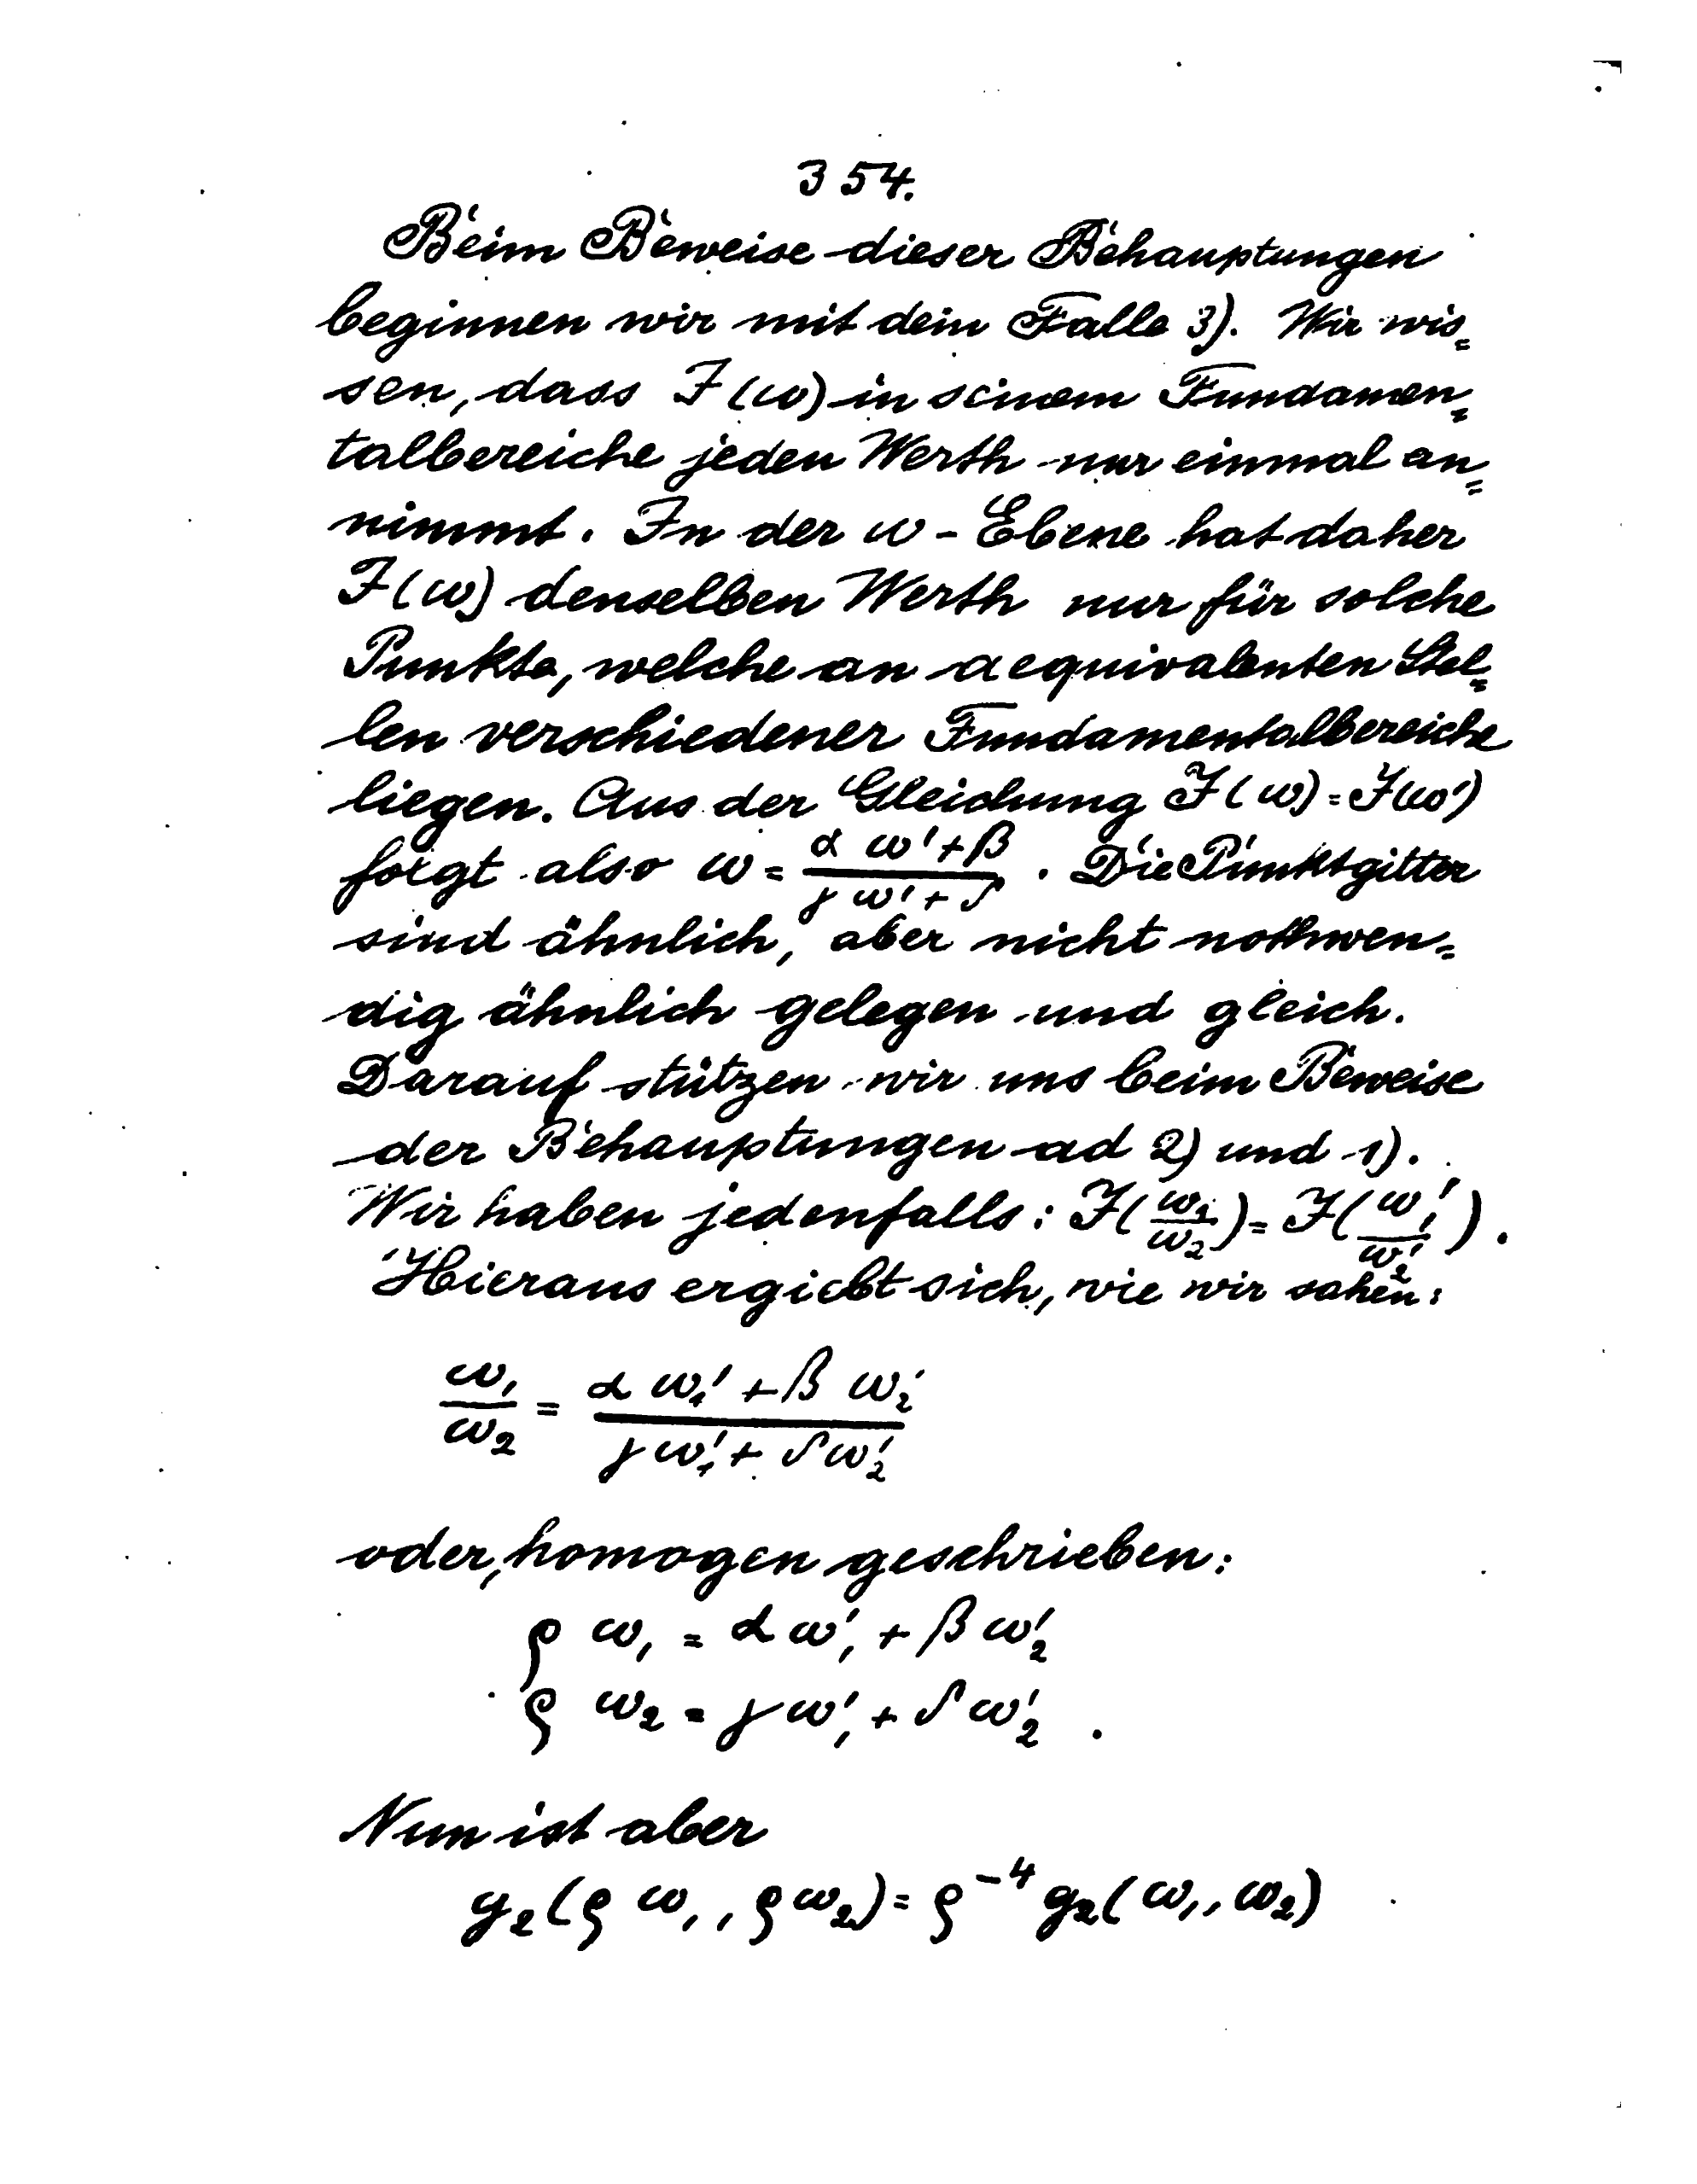 354.
Beim Beweise dieser Behauptungen
beginnen wir mit dem Falle 3). Wir wis=
sen, dass J(ω) in seinem Fundamen=
talbereiche jeden Werth nur einmal an=
nimmt. In der ω-Ebene hat daher
J(ω) denselben Werth nur für solche
Punkte, welche an aequivalenten Stel=
len verschiedener Fundamentalbereiche
liegen. Aus der Gleichung J(ω) = J(ω')
folgt also ω = \frac{α ω' + β}{γ ω' + δ}. Die Punktgitter
sind ähnlich, aber nicht nothwen=
dig ähnlich gelegen und gleich.
Darauf stützen wir uns beim Beweise
der Behauptungen ad 2) und 1).
Wir haben jedenfalls: J(\frac{ω_1}{ω_2}) = J(\frac{ω_1'}{ω_2'}).
Hieraus ergiebt sich, wie wir sahen:
\frac{ω_1}{ω_2} = \frac{α ω_1' + β ω_2'}{γ ω_1' + δ ω_2'}
oder, homogen geschrieben:
ρ ω_1 = α ω_1' + β ω_2'
ρ ω_2 = γ ω_1' + δ ω_2' .
Nun ist aber
g_2(ρ ω_1, ρ ω_2) = ρ^{-4} g_2(ω_1, ω_2)